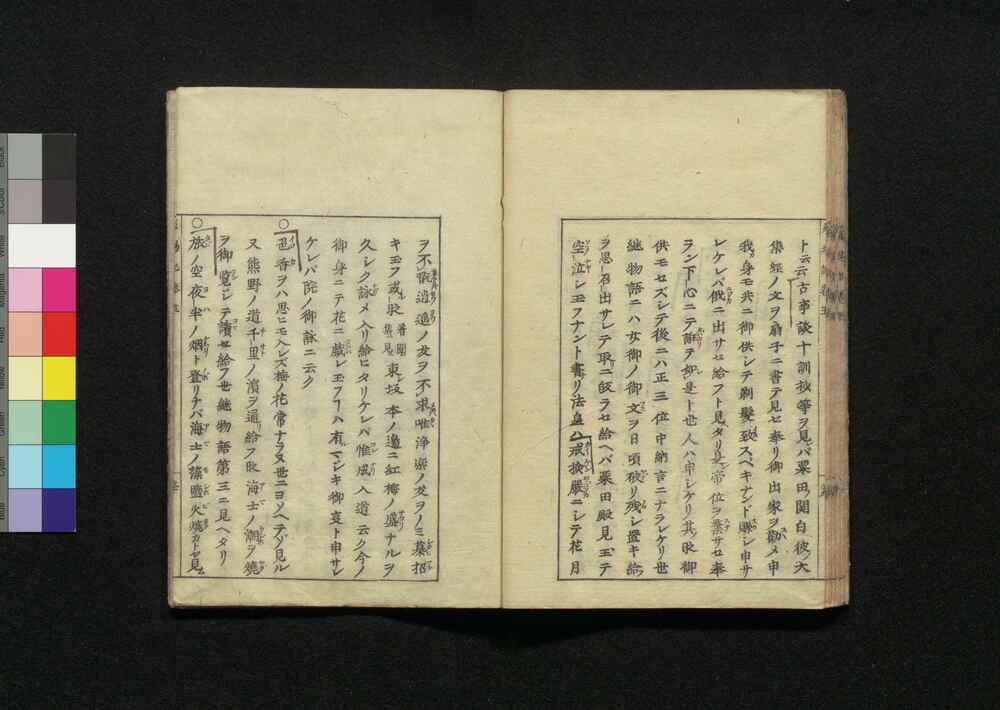 ト云云古事談十訓抄等ヲ見バ粟田ノ関白彼ノ大
集経ノ文ヲ扇子ニ書テ見セ奉リ御出家ヲ勧メ申
我身モ共ニ御供シテ剃髪致スベキナンド賺シ申サ
レケレバ俄ニ出サセ給フト見タリ帝位ヲ棄サセ奉
ラン下心ニテ詐テ如是ト世人ハ申シケリ其時御
供モセズシテ後ニハ正三位中納言ニナラレケリ世
継物語ニハ女御ノ御文ヲ日頃破リ残シ置キ給
ヲ思召出サレテ取ニ皈ラセ給ヘバ粟田殿見玉テ
空泣シモフナント書リ法皇ハ戒検厳ニシテ花月
ヲ不翫逍遥ノ友ヲ不求唯浄楽ノ友ヲノミ慕招
キ玉フ或時 著聞集見 東坂本ノ邊ニ紅梅ノ盛ナルヲ
久シク詠メ入リ給ヒタリケレバ惟成入道云ク今ノ
御身ニテ花ニ戯レ玉フ事ハ有マジキ御哀ト申サレ
ケレバ院ノ御詠ニ云ク
○色香ヲハ思ヒモ入レズ梅ノ花常ナラヌ世ニヨソヘテゾ見ル
又熊野ノ道千里ノ濱ヲ通給フ時海士ノ潮ヲ焼
ヲ御覧シテ讀セ給フ世継物語第三ニ見ヘタリ
○旅ノ空夜半ノ烟ト登リナバ海士ノ藻鹽火焼カトヤ見ム